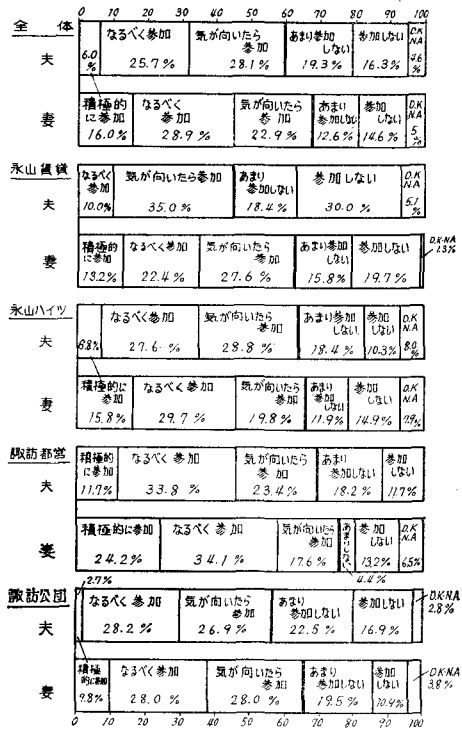 0 10 20 30 40 50 60 70 80 90 100
全体
夫
6.0
%
なるべく参加
25.7%
気が向いたら
参加
28.1%
あまり参加
しない
19.3%
参加しない
16.3%
D.K
N.A
4.6
%
妻
積極的
に参加
16.0%
なるべく
参加
28.9%
気が向いたら
参加
22.9%
あまり
参加しない
12.6%
参加
しない
14.6%
D.K
N.A
5
%
永山賃貸
夫
なるべく
参加
10.0%
気が向いたら参加
35.0%
あまり
参加しない
18.4%
参加しない
30.0%
D.K
N.A
5.1
%
妻
積極的
に参加
13.2%
なるべく参加
22.4%
気が向いたら
参加
27.6%
あまり参加
しない
15.8%
参加しない
19.7%
D.K・N.A
1.3%
永山ハイツ
夫
6.8%
なるべく参加
27.6%
気が向いたら
参加
28.8%
あまり参加
しない
18.4%
参加
しない
10.3%
D.K
N.A
8.0
%
妻
積極的に
参加
15.8%
なるべく参加
29.7%
気が向いたら
参加
19.8%
あまり
参加
しない
11.9%
参加
しない
14.9%
D.K
N.A
7.9%
諏訪都営
夫
積極的
に参加
11.7%
なるべく参加
33.8%
気が向いたら
参加
23.4%
あまり
参加しない
18.2%
参加
しない
11.7%
妻
積極的に参加
24.2%
なるべく参加
34.1%
気が向いたら
参加
17.6%
4.4%
参加
しない
13.2%
D.K
N.A
6.5%
諏訪公団
夫
2.7%
なるべく参加
28.2%
気が向いたら
参加
26.9%
あまり
参加しない
22.5%
参加しない
16.9%
D.K・N.A
2.8%
妻
積極
的に参加
9.8%
なるべく参加
28.0%
気が向いたら
参加
28.0%
あまり
参加しない
19.5%
参加
しない
10.9%
D.K・N.A
3.8%
0 10 20 30 40 50 60 70 80 90 100